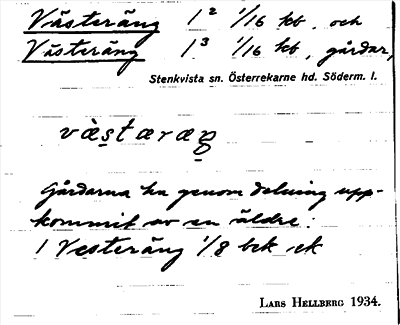 Västeräng 1² 1/16 kb, och
Västeräng 1³ 1/16 kb, gårdar,
Stenkvista sn. Österrekarne hd. Söderm. l.
væ̀stæræŋ
Gårdarna ha genom delning upp-
kommit av en äldre:
1 Vesteräng 1/8 bck
LARS HELLBERG 1934.